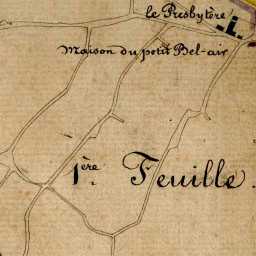 le Presbytère
Maison du petit Bel-air
1ère Feuille.